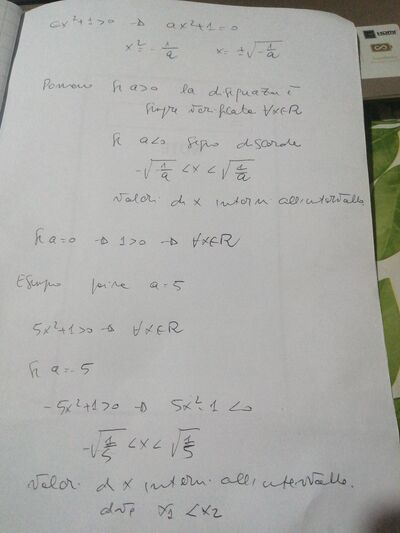 ax²+1>0 → ax²+1=0
x²=-1/a x=±√(-1/a)
Poniamo Se a>0 la disequaz. è
sempre verificata ∀x∈R
Se a<0 segno discorde
-√(-1/a) <x< √(-1/a)
valori di x interni all'intervallo
Se a=0 → 1>0 → ∀x∈R
Esempio a=5
5x²+1>0 → ∀x∈R
Se a=-5
-5x²+1>0 → 5x²-1<0
-√(1/5) <x< √(1/5)
valori di x interni all'intervallo.
dove x1 <x2